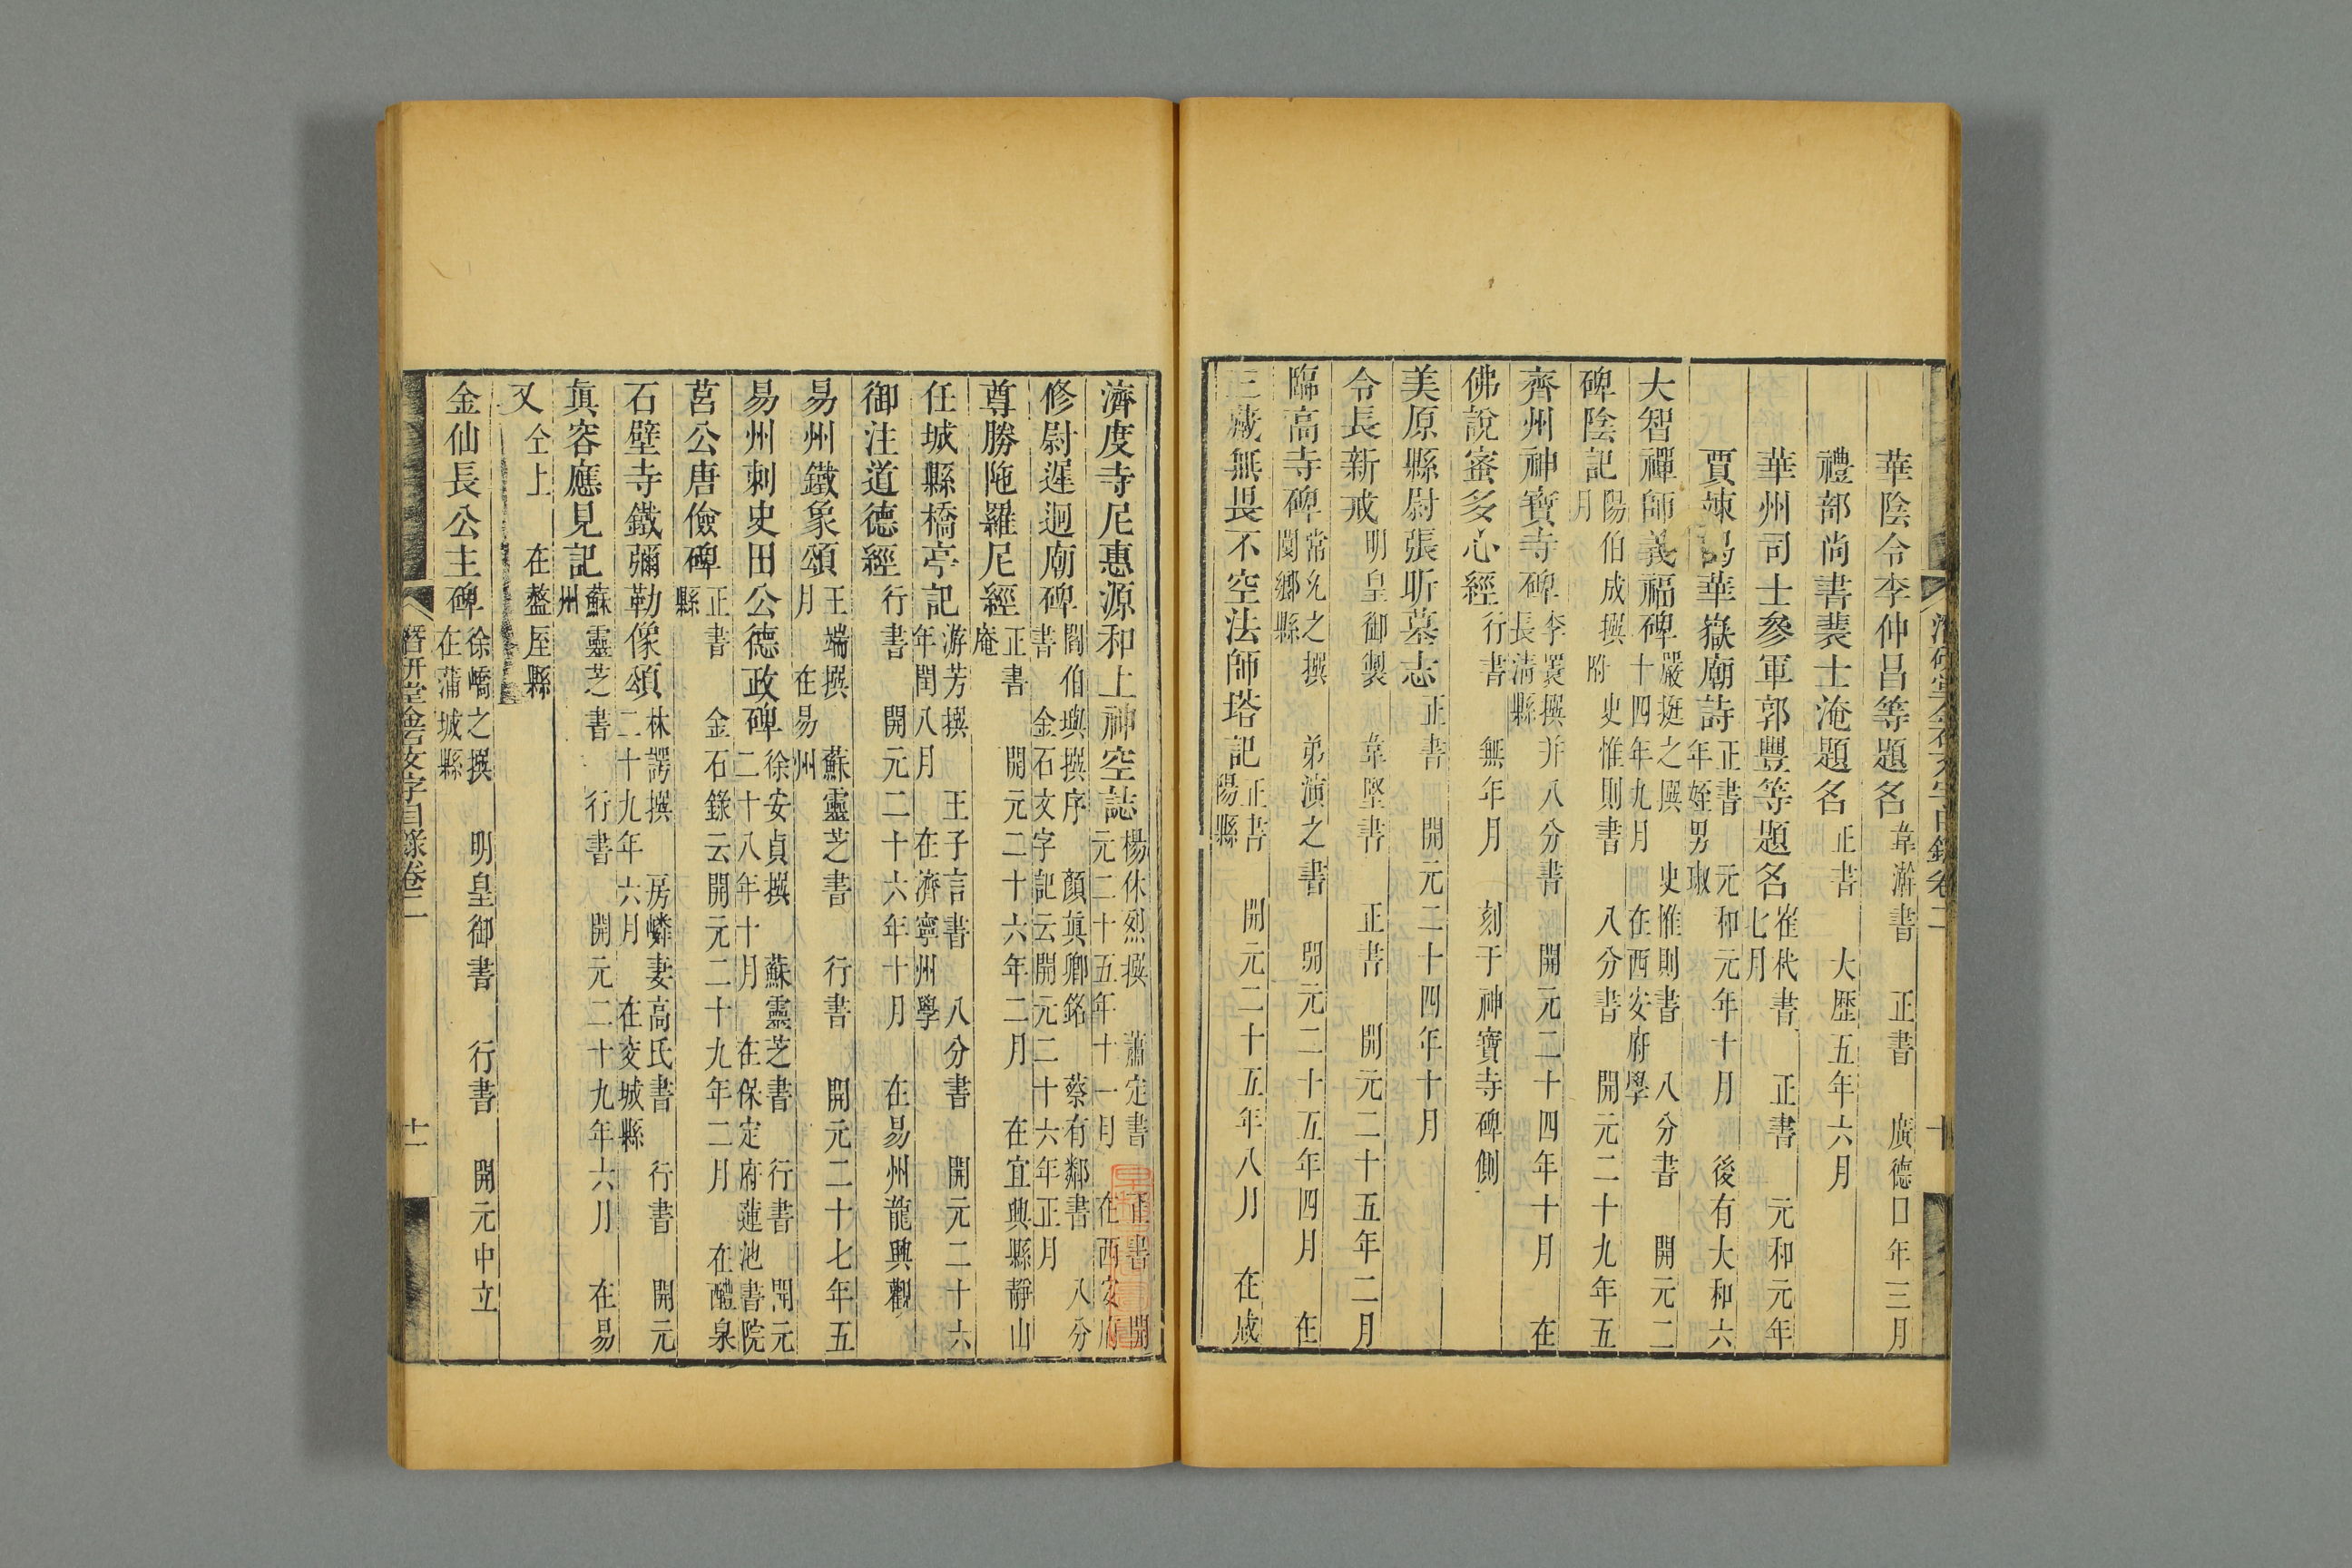 華陰令李仲昌等題名 韋澣書 正書 廣德口年三月
禮部尚書裴士淹題名 正書 大歷五年六月
華州司士參軍郭豐等題名 崔
書 正書 元和元年
七月
賈竦謁華嶽廟詩 正書 元和元年十月 後有大和六
年姪男琡
大智禪師義福碑 嚴挺之撰 史惟則書 八分書 開元二
十四年九月 在西安府學
碑陰記 陽伯成撰 史惟則書 八分書 開元二十九年五
月 附
齊州神寶寺碑 李寰撰并八分書 開元二十四年十月 在
長清縣
佛說蜜多心經 行書 無年月 刻于神寶寺碑側
美原縣尉張昕墓志 正書 開元二十四年十月
令長新戒 明皇御製 韋堅書 正書 開元二十五年二月
臨高寺碑 常允之撰 弟演之書 開元二十五年四月 在
閿鄉縣
三藏無畏不空法師塔記 正書 開元二十五年八月 在咸
陽縣
潛研堂金石文字目錄卷二 十
濟度寺尼惠源和上神空誌 楊休烈撰 蕭定書 正書 開
元二十五年十一月 在西安府
修尉遲迥廟碑 閻伯璵撰序 顏真卿銘 蔡有鄰書 八分
書 金石文字記云開元二十六年正月
尊勝陁羅尼經 正書 開元二十六年二月 在宜興縣靜山
庵
任城縣橋亭記 游芳撰 王子言書 八分書 開元二十六
年閏八月 在濟寧州學
御注道德經 行書 開元二十六年十月 在易州龍興觀
易州鐵象頌 王端撰 蘇靈芝書 行書 開元二十七年五
月 在易州
易州刺史田公德政碑 徐安貞撰 蘇靈芝書 行書 開元
二十八年十月 在保定府蓮池書院
莒公唐儉碑 正書 金石錄云開元二十九年二月 在醴泉
縣
石壁寺鐵彌勒像頌 林諤撰 房嶙妻高氏書 行書 開元
二十九年六月 在交城縣
真容應見記 蘇靈芝書 行書 開元二十九年六月 在易
州
又 仝上 在盩厔縣
金仙長公主碑 徐嶠之撰 明皇御書 行書 開元中立
在蒲城縣
潛研堂金石文字目錄卷二 十一